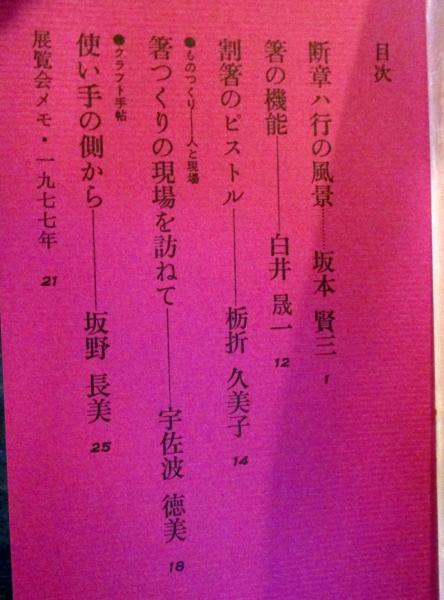 目次
断章ハ行の風景…………坂本 賢三 1
箸の機能————白井 晟一 12
割箸のピストル————栃折 久美子 14
●ものつくり——人と現場
箸つくりの現場を訪ねて————宇佐波 徳美 18
●クラフト手帖
使い手の側から————坂野 長美 25
展覧会メモ・一九七七年 21